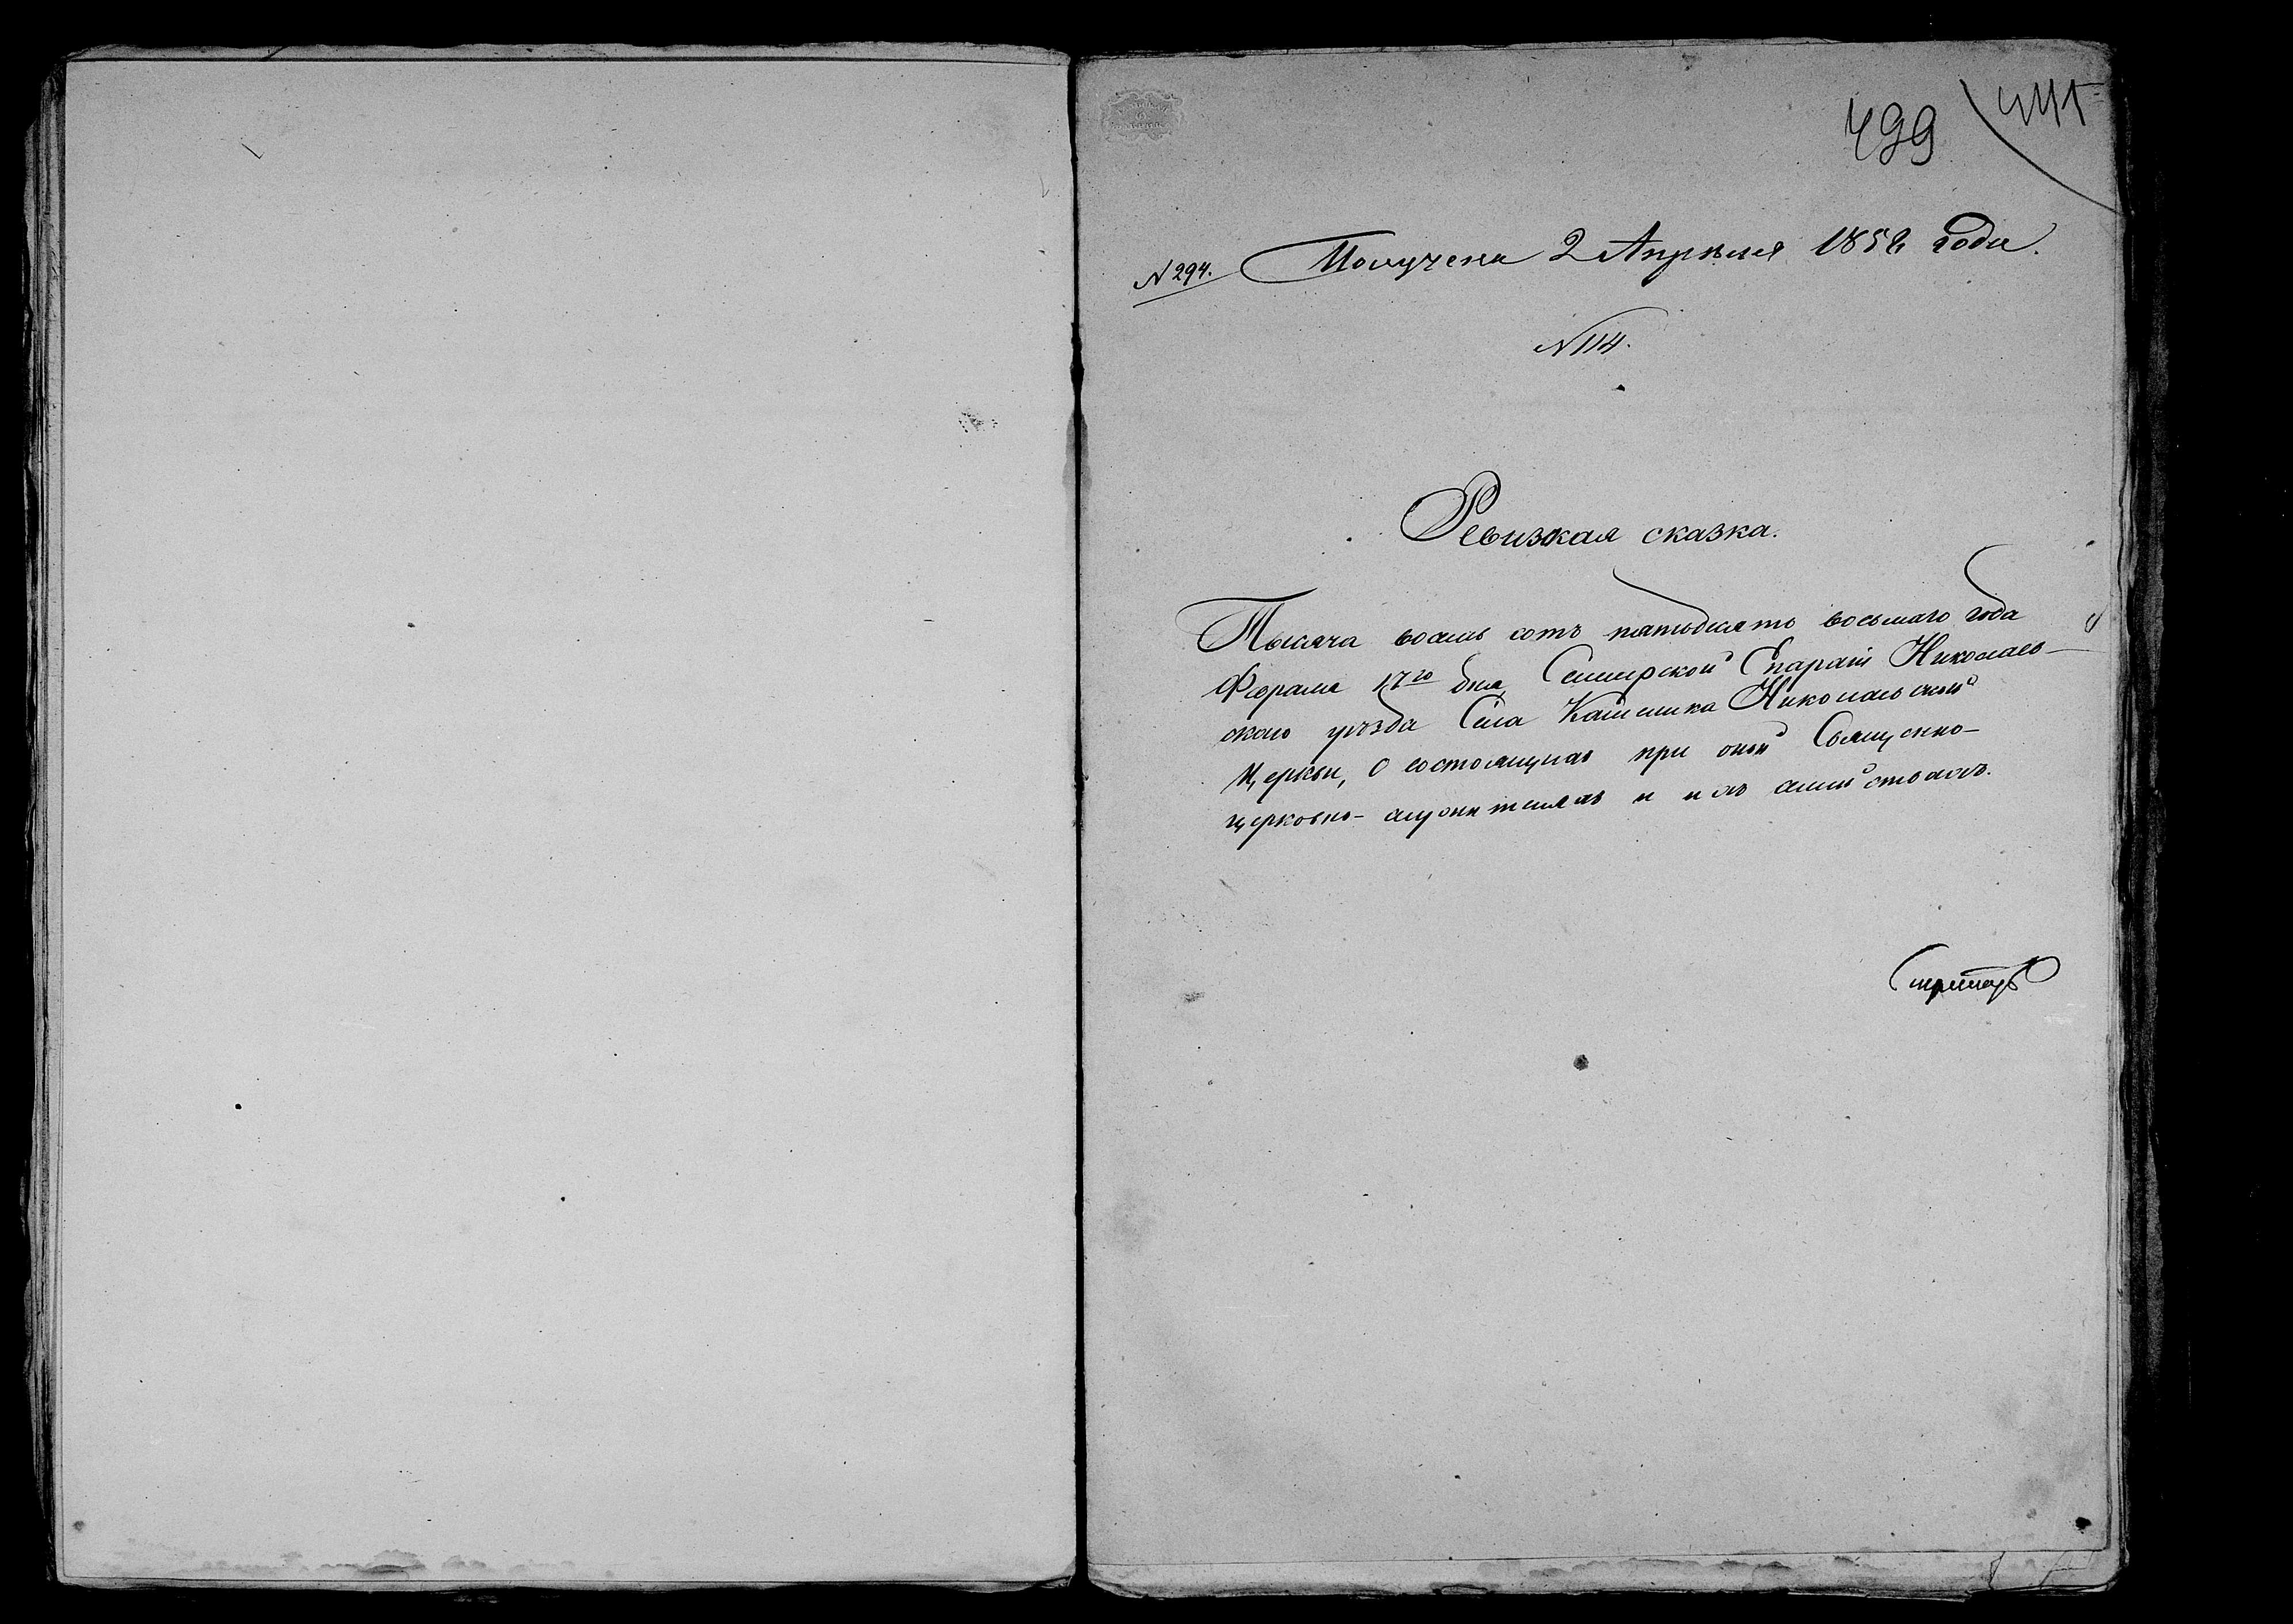 499
№ 294. Получена 2 Апрѣля 1858 года.
№ 114.
Ревизкая сказка.
Тысяча восемь сотъ пятьдесятъ восьмаго года
Февраля 17го дня, Епархіи Николаев-
скаго уѣзда Села Николаевской
Церкви, о состоящихъ при оной Священно-
церковно-служителяхъ и ихъ семействахъ.